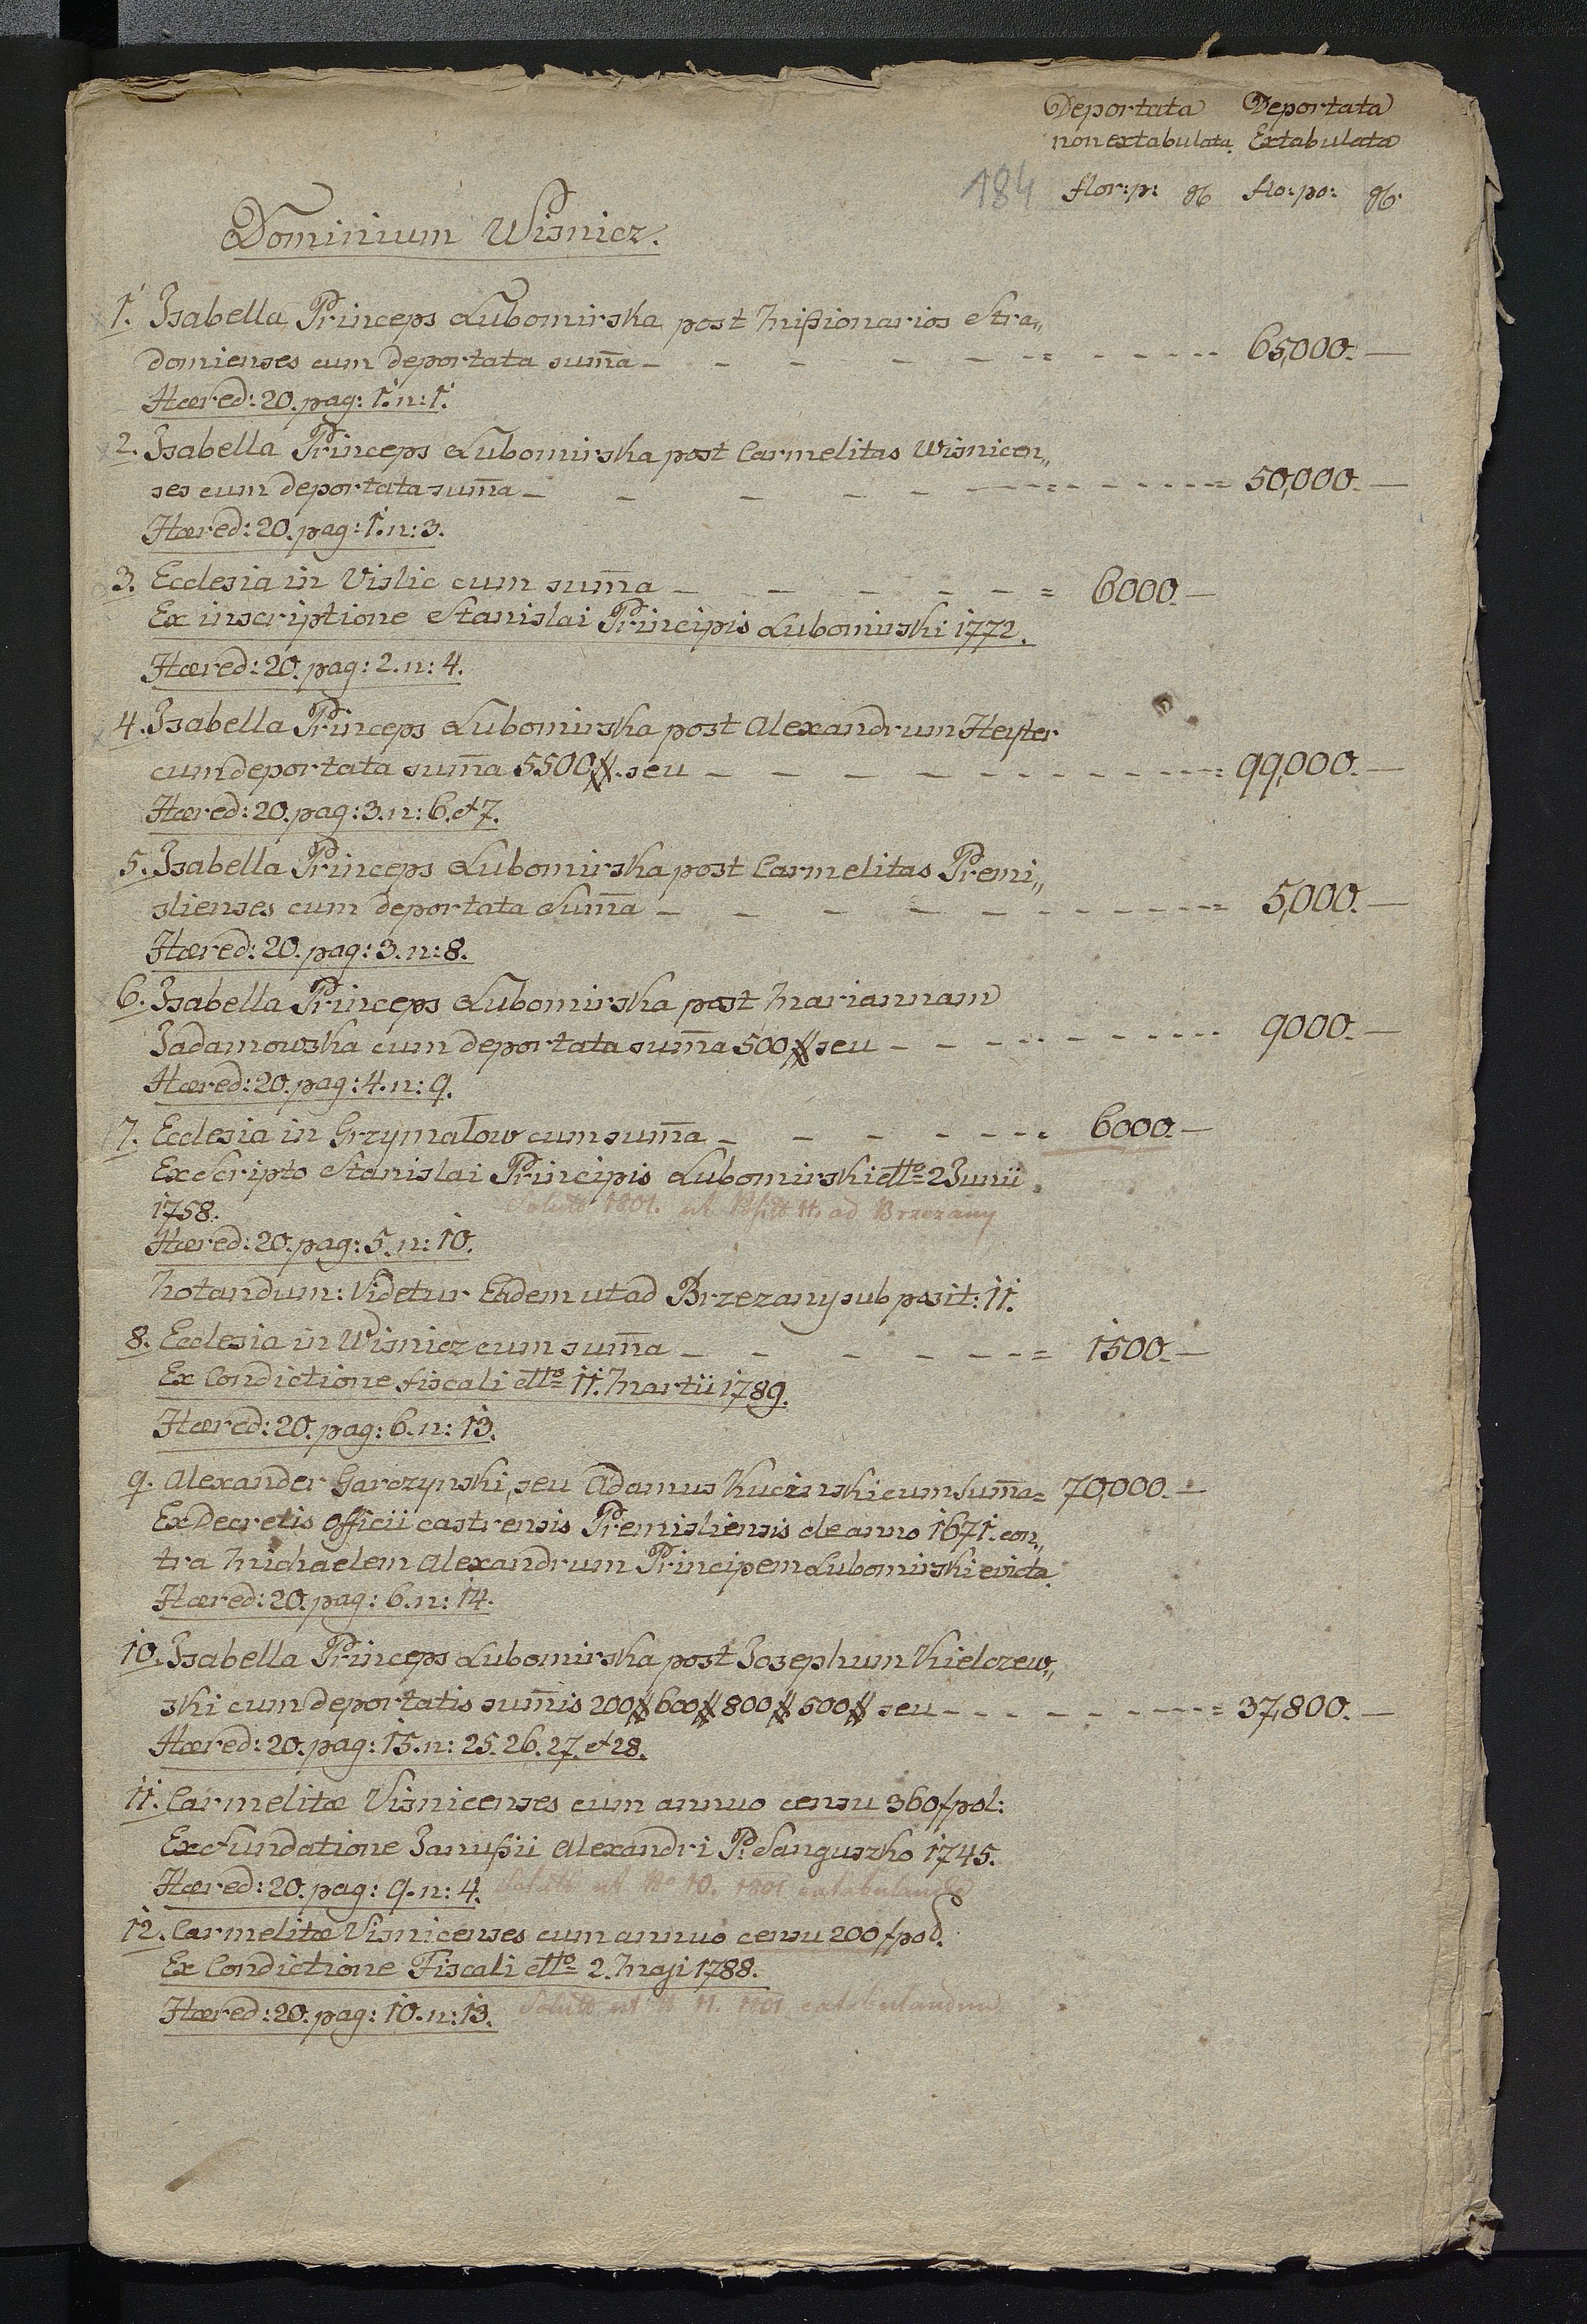 Deportata Deportata
non extabulata. Extabulata
184 flor: p: gr flo: po: gr.
Dominium Wisnicz.
1. Isabella Princeps Lubomirska post Mißionarios Stra„
domienses cum deportata sum̄a - - - - - = - - - - 65,000. —
Hæred: 20. pag: 1. n: 1.
2. Isabella Princeps Lubomirska post Carmelitas Wisnicen„
ses cum deportata sum̄a - - - - - - = - - - - = 50,000. —
Hæred: 20. pag: 1. n: 3.
3. Ecclesia in Vislic cum sum̄a - - - - - = 6000. —
Ex inscriptione Stanislai Principis Lubomirski 1772.
Hæred: 20. pag: 2. n: 4.
4. Isabella Princeps Lubomirska post Alexandrum Heyter
cum deportata sum̄a 5500 #. seu - - - - - - - - = 99,000. —
Hæred: 20. pag: 3. n: 6. et 7.
5. Isabella Princeps Lubomirska post Carmelitas Premi„
slienses cum deportata Sum̄a - - - - - - - - = 5,000. —
Hæred: 20. pag: 3. n: 8.
6. Isabella Princeps Lubomirska post Mariannam
Zadamowska cum deportata sum̄a 500 # seu - - - - - - - 9000. —
Hæred: 20. pag: 4. n: 9.
7. Ecclesia in Grzymałow cum sum̄a - - - - - = 6000. —
Ex Scripto Stanislai Principis Lubomirski dtto 2 Junii
1758. Solutt 1801. ut ad Brzezany
Hæred: 20. pag: 5. n: 10.
Notandum: Videtur Eadem ut ad Brzezany sub posit: 11.
8. Ecclesia in Wisnicz cum sum̄a - - - - - = 1500. —
Ex Condictione fiscali dtto 11. Martii 1789.
Hæred: 20. pag: 6. n: 13.
9. Alexander Garczynski, seu Adamus Kucinski cum Sum̄a = 70,000. —
Ex Decretis Officii castrensis Premisliensis de anno 1671. con„
tra Michaelem Alexandrum Principem Lubomirski evicta.
Hæred: 20. pag: 6. n: 14.
10. Isabella Princeps Lubomirska post Josephum Kielczew„
ski cum deportatis sum̄is 200 # 600 # 800 # 500 # seu - - - - - - = 37,800. —
Hæred: 20. pag: 15. n: 25. 26. 27. et 28.
11. Carmelitæ Visnicenses cum annuo censu 360 f pol:
Ex fundatione Janußii Alexandri P. Sanguszko 1745.
Hæred: 20. pag: 9. n: 4. Solutt ut 10. 1801
12. Carmelitæ Visnicenses cum annuo censu 200 f pol.
Ex Condictione Fiscali dtto 2. Maji 1788.
Hæred: 20. pag: 10. n: 13. Solutt ut 11. 1801 extabulandum